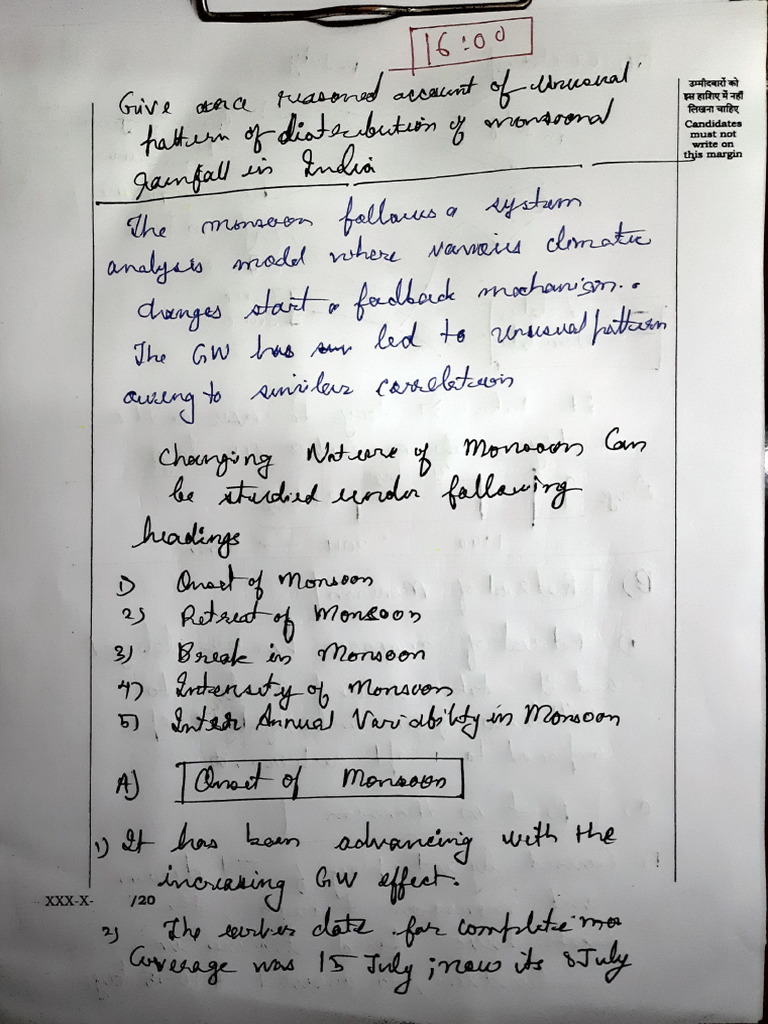 16:00
उम्मीदवारों को
इस हाशिए में नहीं
लिखना चाहिए
Candidates
must not
write on
this margin
Give a reasoned account of unusual
pattern of distribution of monsoonal
rainfall in India
The monsoon follows a system
analysis model where various climatic
changes start a feedback mechanism.
The GW has led to unusual pattern
owing to similar correlation
Changing Nature of Monsoon Can
be studied under following
headings
1) Onset of Monsoon
2) Retreat of Monsoon
3) Break in Monsoon
4) Intensity of Monsoon
5) Inter Annual Variability in Monsoon
A) Onset of Monsoon
1) It has been advancing with the
increasing GW effect.
XXX-X- /20
2) The earlier date for complete
Coverage was 15 July ; now its 8 July